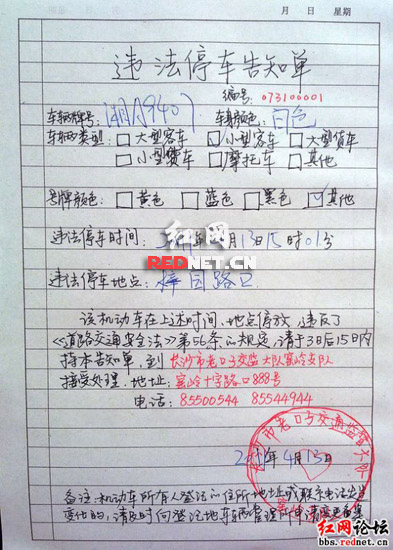 月 日 星期
违法停车告知单
编号:073100001
车辆牌号: 湘A9407 车身颜色: 白色
车辆类型: 大型客车 小型客车 大型货车
小型货车 摩托车 其他
号牌颜色: 黄色 蓝色 黑色 其他
红网
REDNET.CN
违法停车时间: 月13日 时01分
违法停车地点: 梓园路口
该机动车在上述时间、地点停放,违反了
《道路交通安全法》第56条的规定,请于3日后15日内
持本告知单,到 长沙市老口子交监大队窯岭支队
接受处理。地址: 窯岭十字路口888号
电话: 85500544 85544944
长沙市老口子交通监督大队
2011年4月13日
备注:机动车所有人登记的住所地址或联系电话发生
变化的,请及时向登记地车辆管理所申请变更备案
红网论坛
bbs.rednet.cn